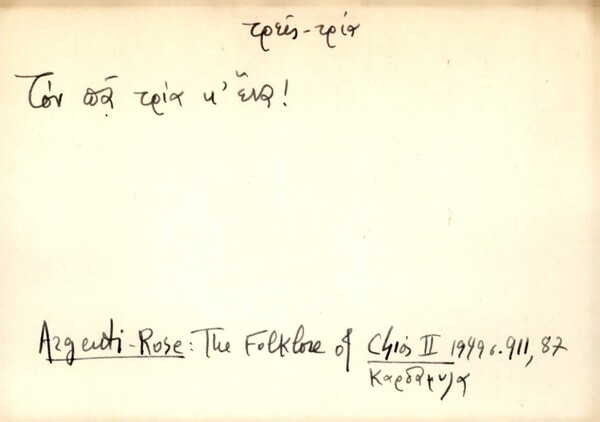 τρεῖς - τρία
Τὸν πᾷ τρία κ' ἕνα!
Argenti-Rose: The Folklore of Chios II 1949 σ. 911, 87
Καρδάμυλα